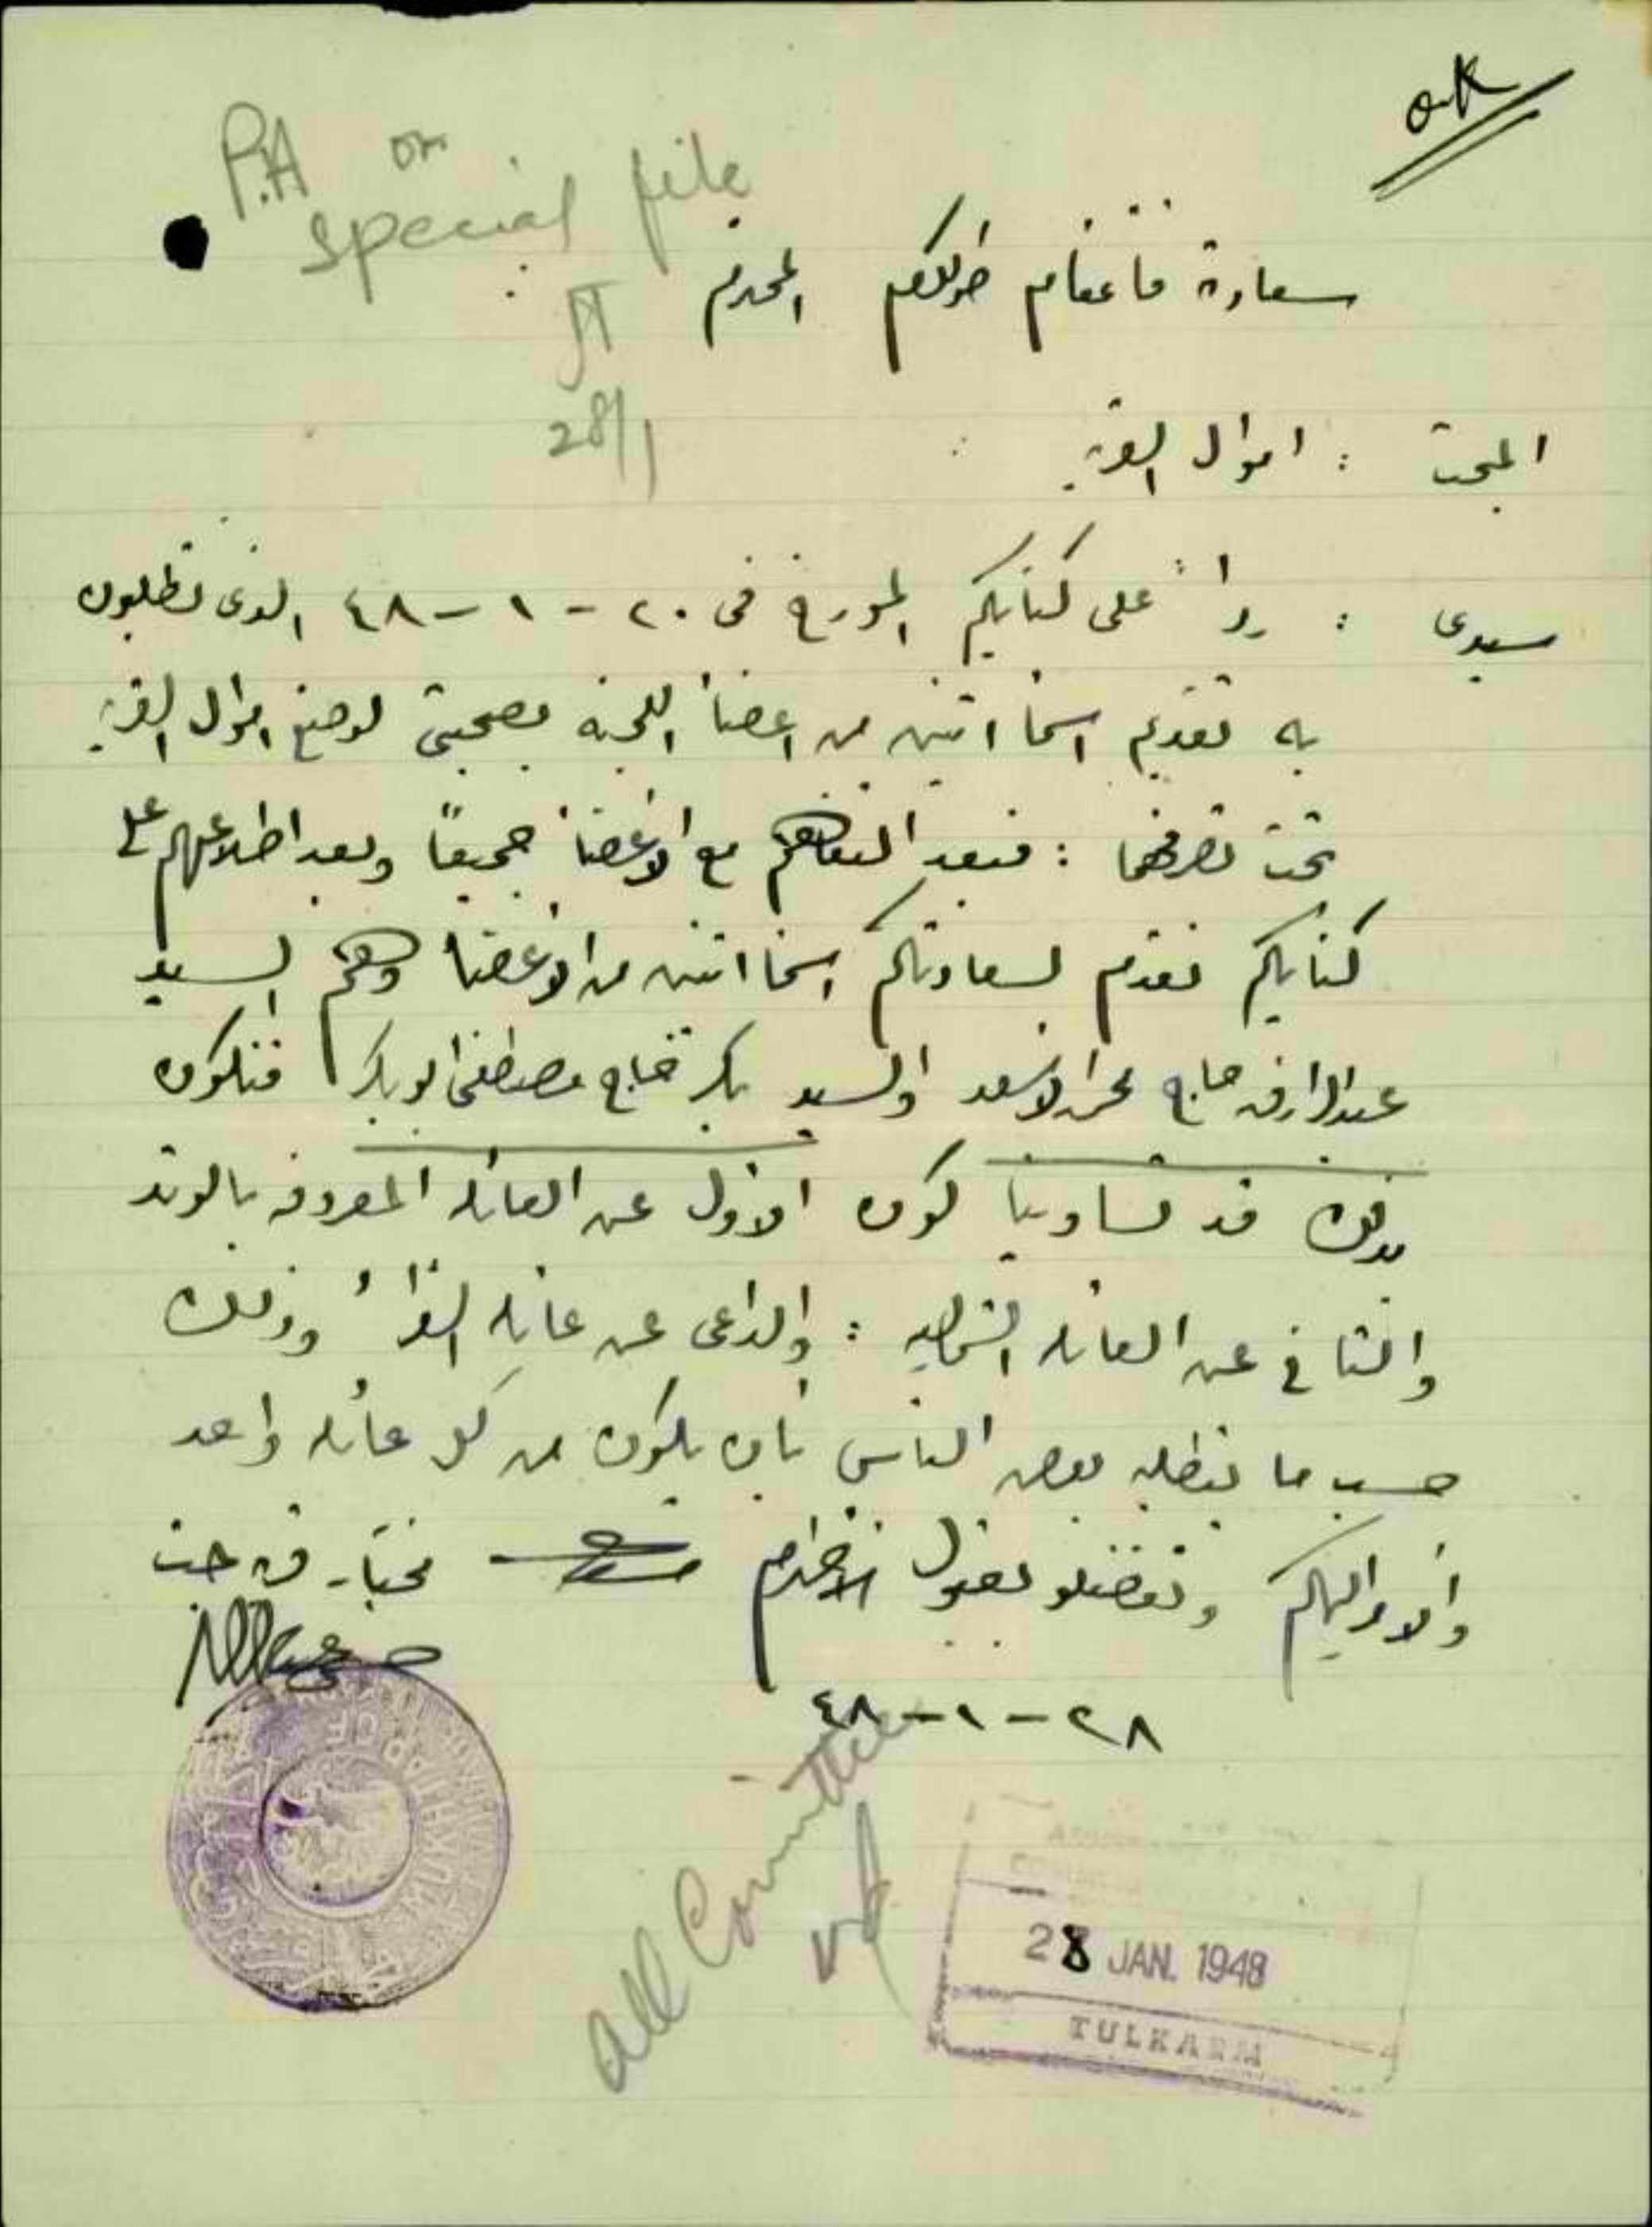 O.K
P.A on
special file
28/1
سعادة قائمقام طولكرم المحترم
المبحث : اموال القرية
سيدي : رداً على كتابكم المورخ في ٢٠-١-٤٨ الذي تطلبون
به تقديم اسما اثنين من اعضا اللجنه بصحبتي لوضع اموال القريه
تحت تصرفهما : فبعد التفاهم مع الاعضا جميعاً وبعد اطلاعهم على
كتابكم نقدم لسعادتكم اسما اثنين من الاعضا وهم السيد
عبد الرازق حاج الاسعد والسيد بكر حاج مصطفى ابو بكر فنكون
بذلك قد تساوينا كون الاول عن العائله المعروفه
والثاني عن العائله الشماليه : والداعي عن عائلة وذلك
حسب ما يتطلبه بعض الناس بان يكون من كل عائله واحد
والامر اليكم وتفضلو بقبول الاحترام مختار
٢٨-١-٤٨
all Committee
MUKHTAR OF
28 JAN. 1948
TULKARM